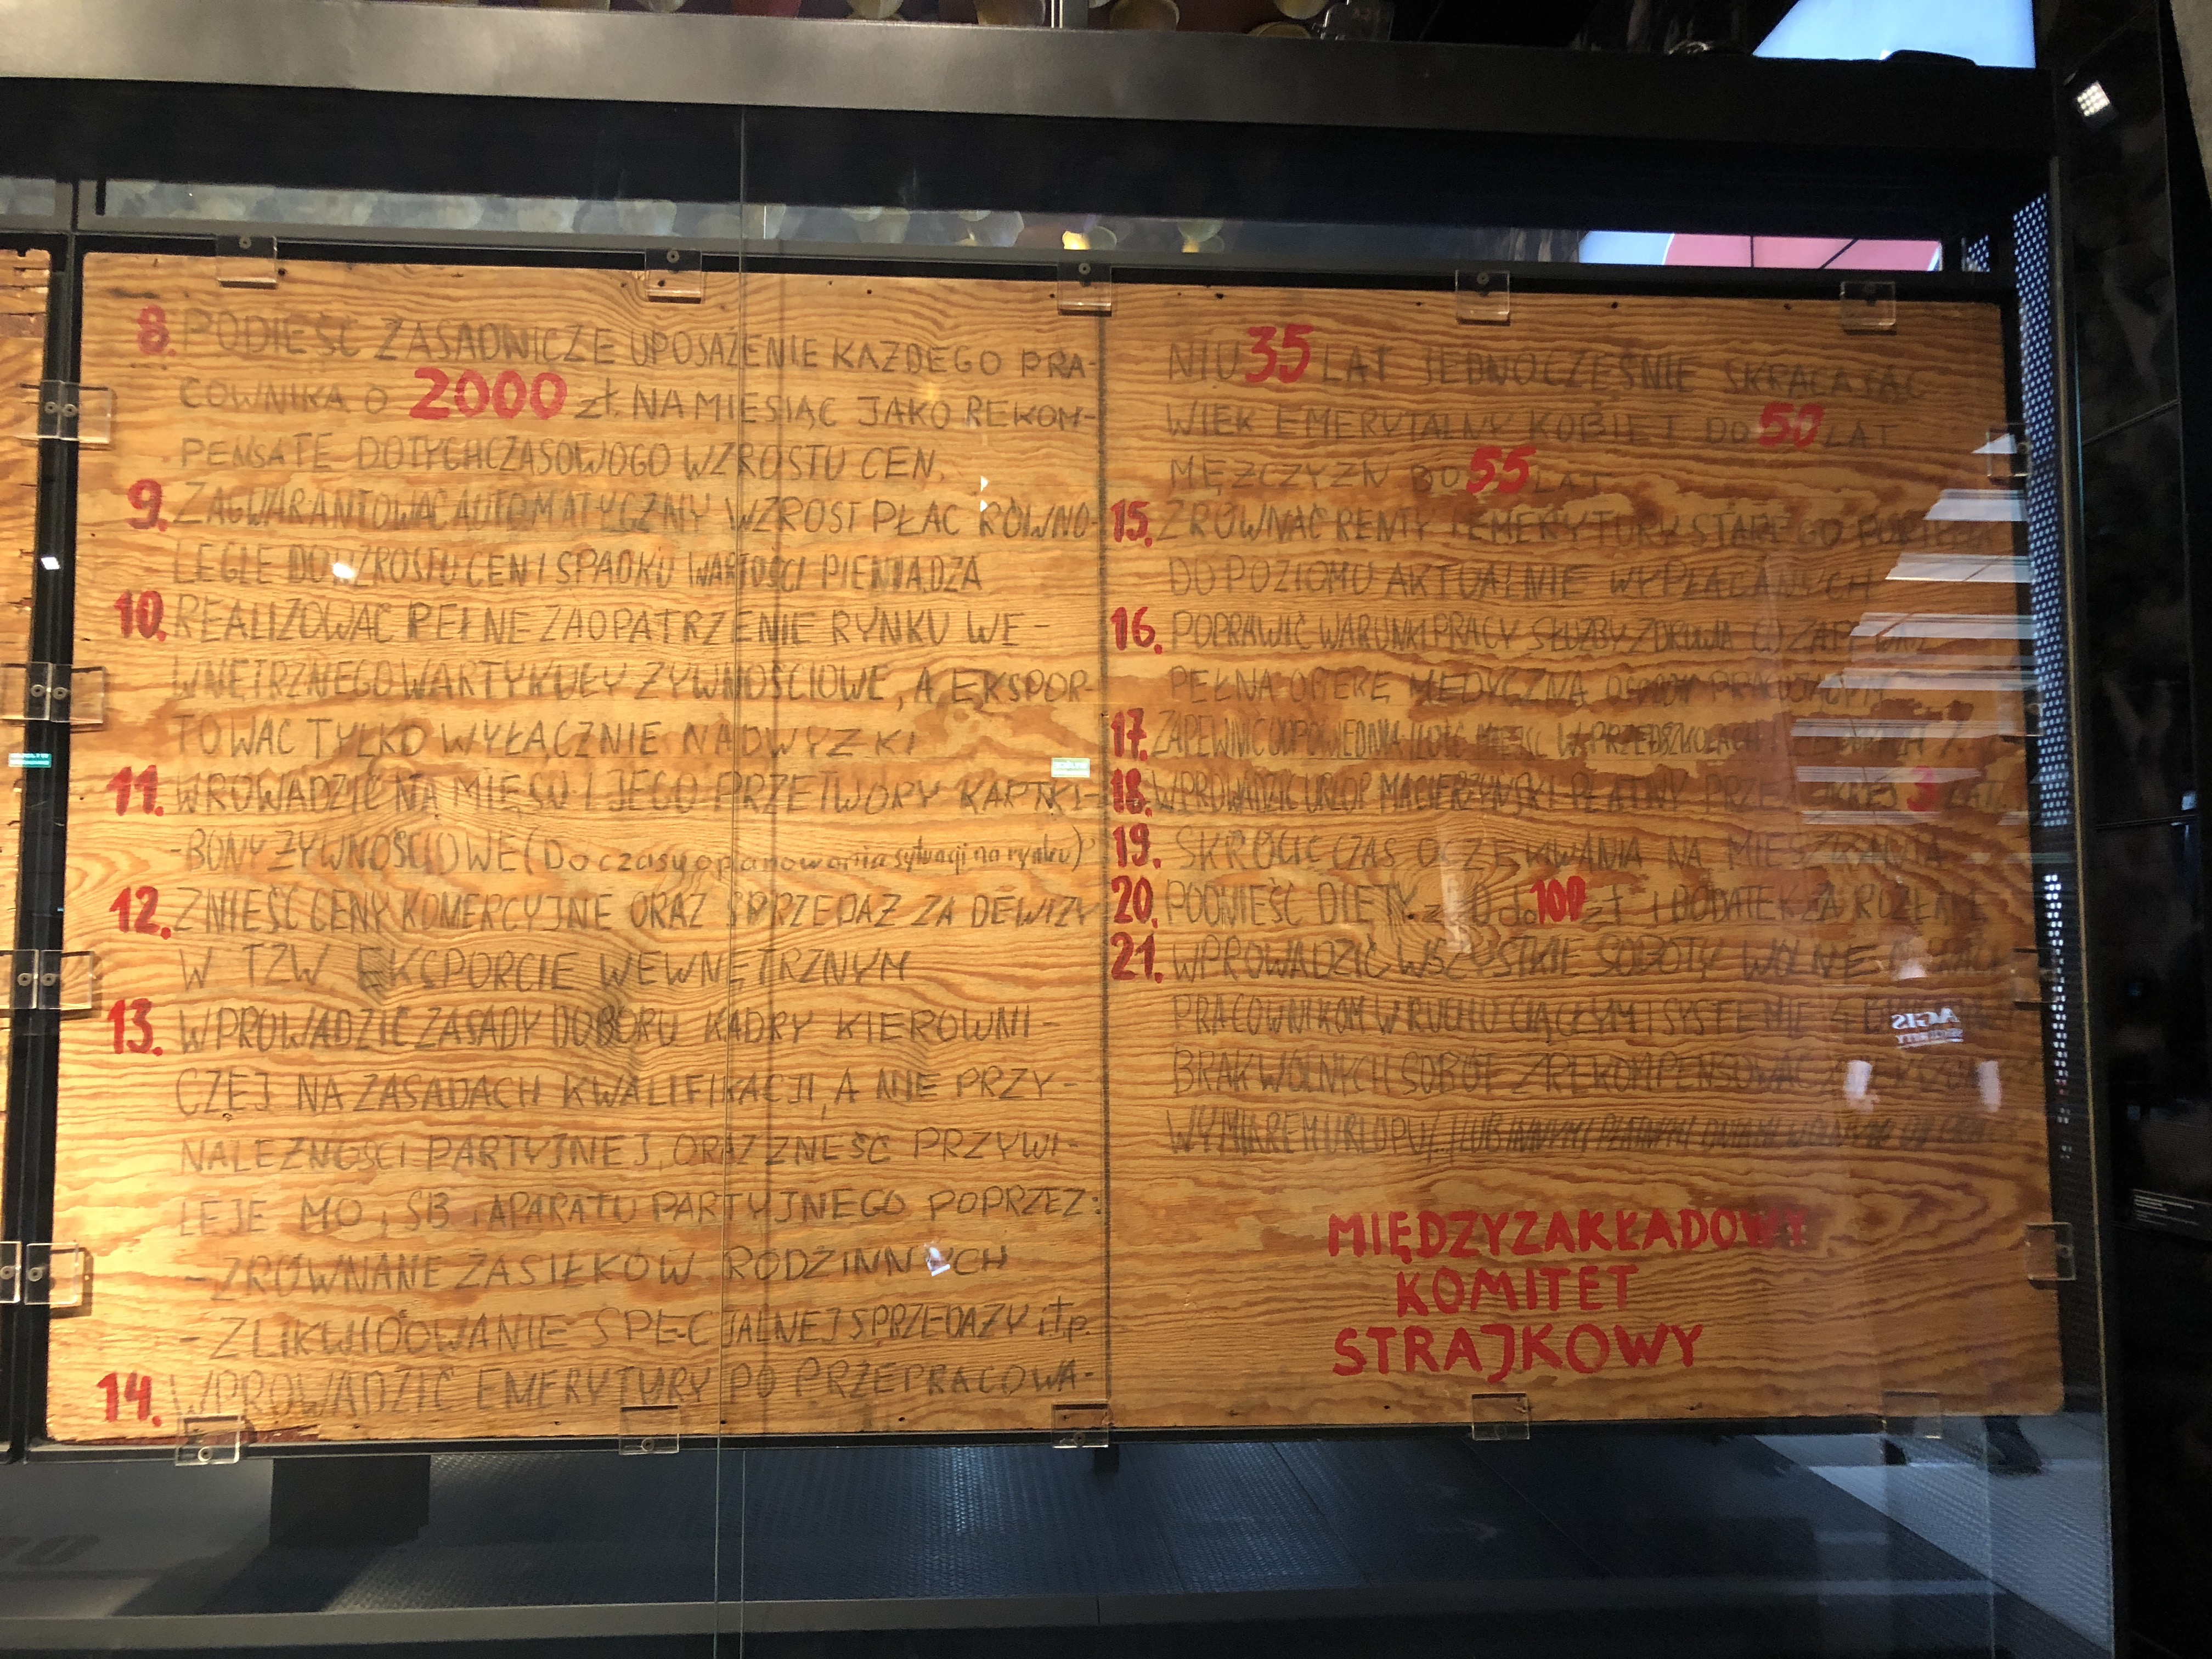 8. PODIEŚĆ ZASADNICZE UPOSAŻENIE KAŻDEGO PRA-
COWNIKA O 2000 zł. NA MIESIĄC JAKO REKOM-
PENSATE DOTYCHCZASOWOGO WZROSTU CEN.
9. ZAGWARANTOWAĆ AUTOMATYCZNY WZROST PŁAC RÓWNO-
LEGLE DO WZROSTU CEN I SPADKU WARTOŚCI PIENIĄDZA
10. REALIZOWAĆ PEŁNE ZAOPATRZENIE RYNKU WE-
WNĘTRZNEGO W ARTYKUŁY ŻYWNOŚCIOWE, A EKSPOR-
TOWAĆ TYLKO WYŁĄCZNIE NADWYŻKI
11. WROWADZIĆ NA MIĘSO I JEGO PRZETWORY KARTKI-
-BONY ŻYWNOŚCIOWE (Do czasu opanowania sytuacji na rynku)
12. ZNIEŚĆ CENY KOMERCYJNE ORAZ SPRZEDAŻ ZA DEWIZY
W TZW EKSPORCIE WEWNĘTRZNYM
13. WPROWADZIĆ ZASADY DOBORU KADRY KIEROWNI-
CZEJ NA ZASADACH KWALIFIKACJI, A NIE PRZY-
NALEŻNOŚCI PARTYJNEJ, ORAZ ZNEŚĆ PRZYWI-
LEJE MO, SB i APARATU PARTYJNEGO POPRZEZ:
- ZRÓWNANE ZASIŁKÓW RODZINNYCH
- ZLIKWIDOWANIE SPECJALNEJ SPRZEDAŻY i.t.p.
14. WPROWADZIĆ EMERYTURY PO PRZEPRACOWA-
NIU 35 LAT JEDNOCZEŚNIE SKRACAJĄC
WIEK EMERYTALNY KOBIET DO 50 LAT
MĘŻCZYZN DO 55 LAT
15. ZRÓWNAĆ RENTY I EMERYTURY STAREGO
DO POZIOMU AKTUALNIE WYPŁACANYCH
16. POPRAWIĆ WARUNKI PRACY SŁUŻBY ZDROWIA
PEŁNĄ OPIEKĘ MEDYCZNĄ
17. ZAPEWNIĆ ODPOWIEDNIĄ ILOŚĆ MIEJSC W PRZEDSZKOLACH
18. WPROWADZIĆ URLOP MACIERZYŃSKI PŁATNY PRZEZ OKRES 3 LAT
19. SKRÓCIĆ CZAS OCZEKIWANIA NA MIESZKANIA
20. PODNIEŚĆ DIETY z do 100 zł i DODATEK ZA ROZŁĄKĘ
21. WPROWADZIĆ WSZYSTKIE SOBOTY WOLNE
PRACOWNIKOM W RUCHU CIĄGŁYM I SYSTEMIE 4
BRAK WOLNYCH SOBÓT ZREKOMPENSOWAĆ
WYMIAREM URLOPU LUB INNYMI PŁATNYMI DNIAMI
MIĘDZYZAKŁADOWY
KOMITET
STRAJKOWY